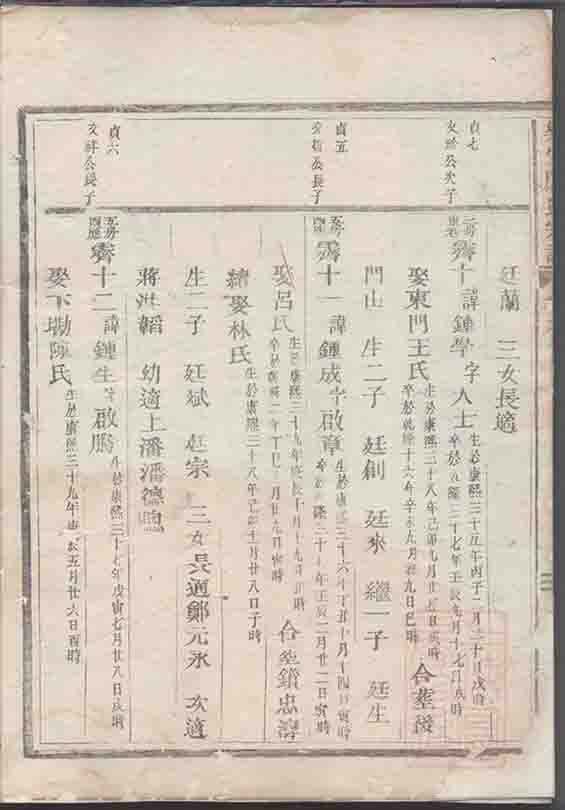 廷蘭 三女長適
貞七
文 公次子
霽十 諱鍾學 字人士 生於康熙三十五年丙子二月二十日戌時
卒於乾隆三十七年壬辰九月十七日 時
娶東門王氏 生於康熙三十八年己卯九月廿 日 時
卒於乾隆十六年辛未九月 九日巳時 合塟後
門山 生二子 廷創 廷來 繼一子 廷生
貞五
公長子
霽十一 諱鍾成 字啟章 生於康熙三十六年丁丑十月十四日寅時
卒於 隆三十 年壬辰二月廿二日寅時
娶呂氏 生於康熙三十九年庚辰十月十九日 時
卒於 二年丁巳 月廿九日寅時 合塟鎖忠壽
續娶林氏 生於康熙三十八年己卯十二月廿八日子時
生二子 廷斌 廷宗 三女長適鄭元永 次適
蔣洪韜 幼適上潘潘德
貞六
文 公長子
霽十二 諱鍾生 字啟鵬 生於康熙三十七年戊寅七月廿八日戌時
娶下 陳氏 生於康熙三十九年庚辰五月廿六日酉時